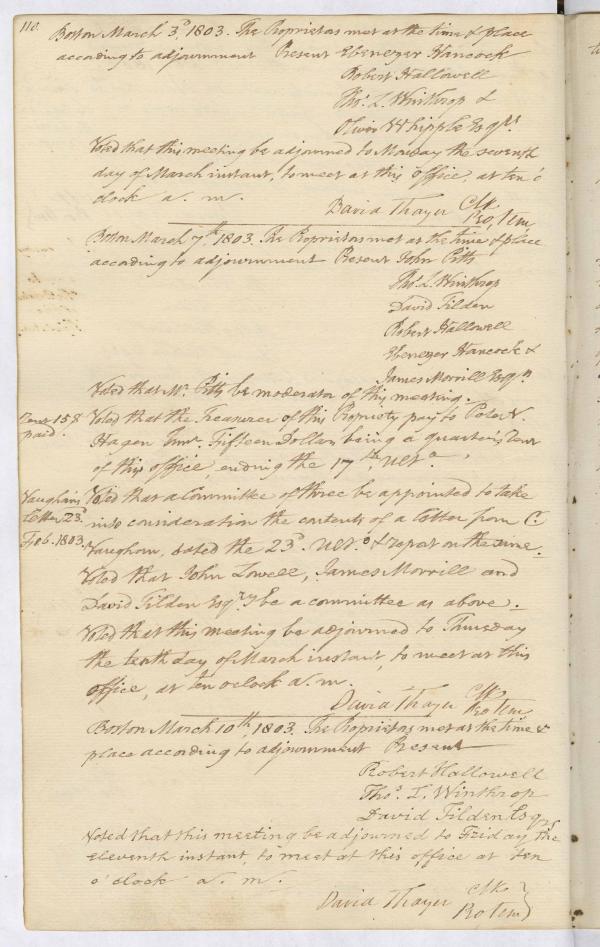 110.
Boston March 3d, 1803. The Proprietors met at the time & place
according to adjournment Present Ebenezer Hancock
Robert Hallowell
Thos. L. Winthrop &
Oliver Whipple Esqrs.
Voted that this meeting be adjourned to Monday the seventh
day of March instant, to meet at this office, at ten o'
clock a. m.
David Thayer Clk
Pro, Tem,
Boston March 7th, 1803. The Proprietors met at the time & place
according to adjournment Present John Pitts
Thos. L. Winthrop
David Tilden
Robert Hallowell
Ebenezer Hancock &
James Morrill Esqrs
Voted that Mr. Pitts be moderator of this meeting.
Rent 15$
paid.
Voted that the Treasurer of this Propriety pay to Peter V.
Hagen Junr. Fifteen Dollars being a quarter's Rent
of this office, ending the 17th, Ulto.
Vaughan's
Letter 23d
Feb. 1803.
Voted that a Committee of three be appointed to take
into consideration the contents of a letter from C.
Vaughan, dated the 23d. Ulto. & report on the same.
Voted that John Lowell, James Morrill and
David Tilden Esqrs be a committee as above.
Voted that this meeting be adjourned to Thursday
the tenth day of March instant, to meet at this
office, at ten oclock a. m.
David Thayer Clk
Pro Tem
Boston March 10th, 1803. The Proprietors met at the time &
place according to adjournment Present
Robert Hallowell
Thos. L. Winthrop
David Tilden Esqrs
Voted that this meeting be adjourned to Friday the
eleventh instant, to meet at this office at ten
o'clock a. m.
David Thayer Clk
Pro Tem